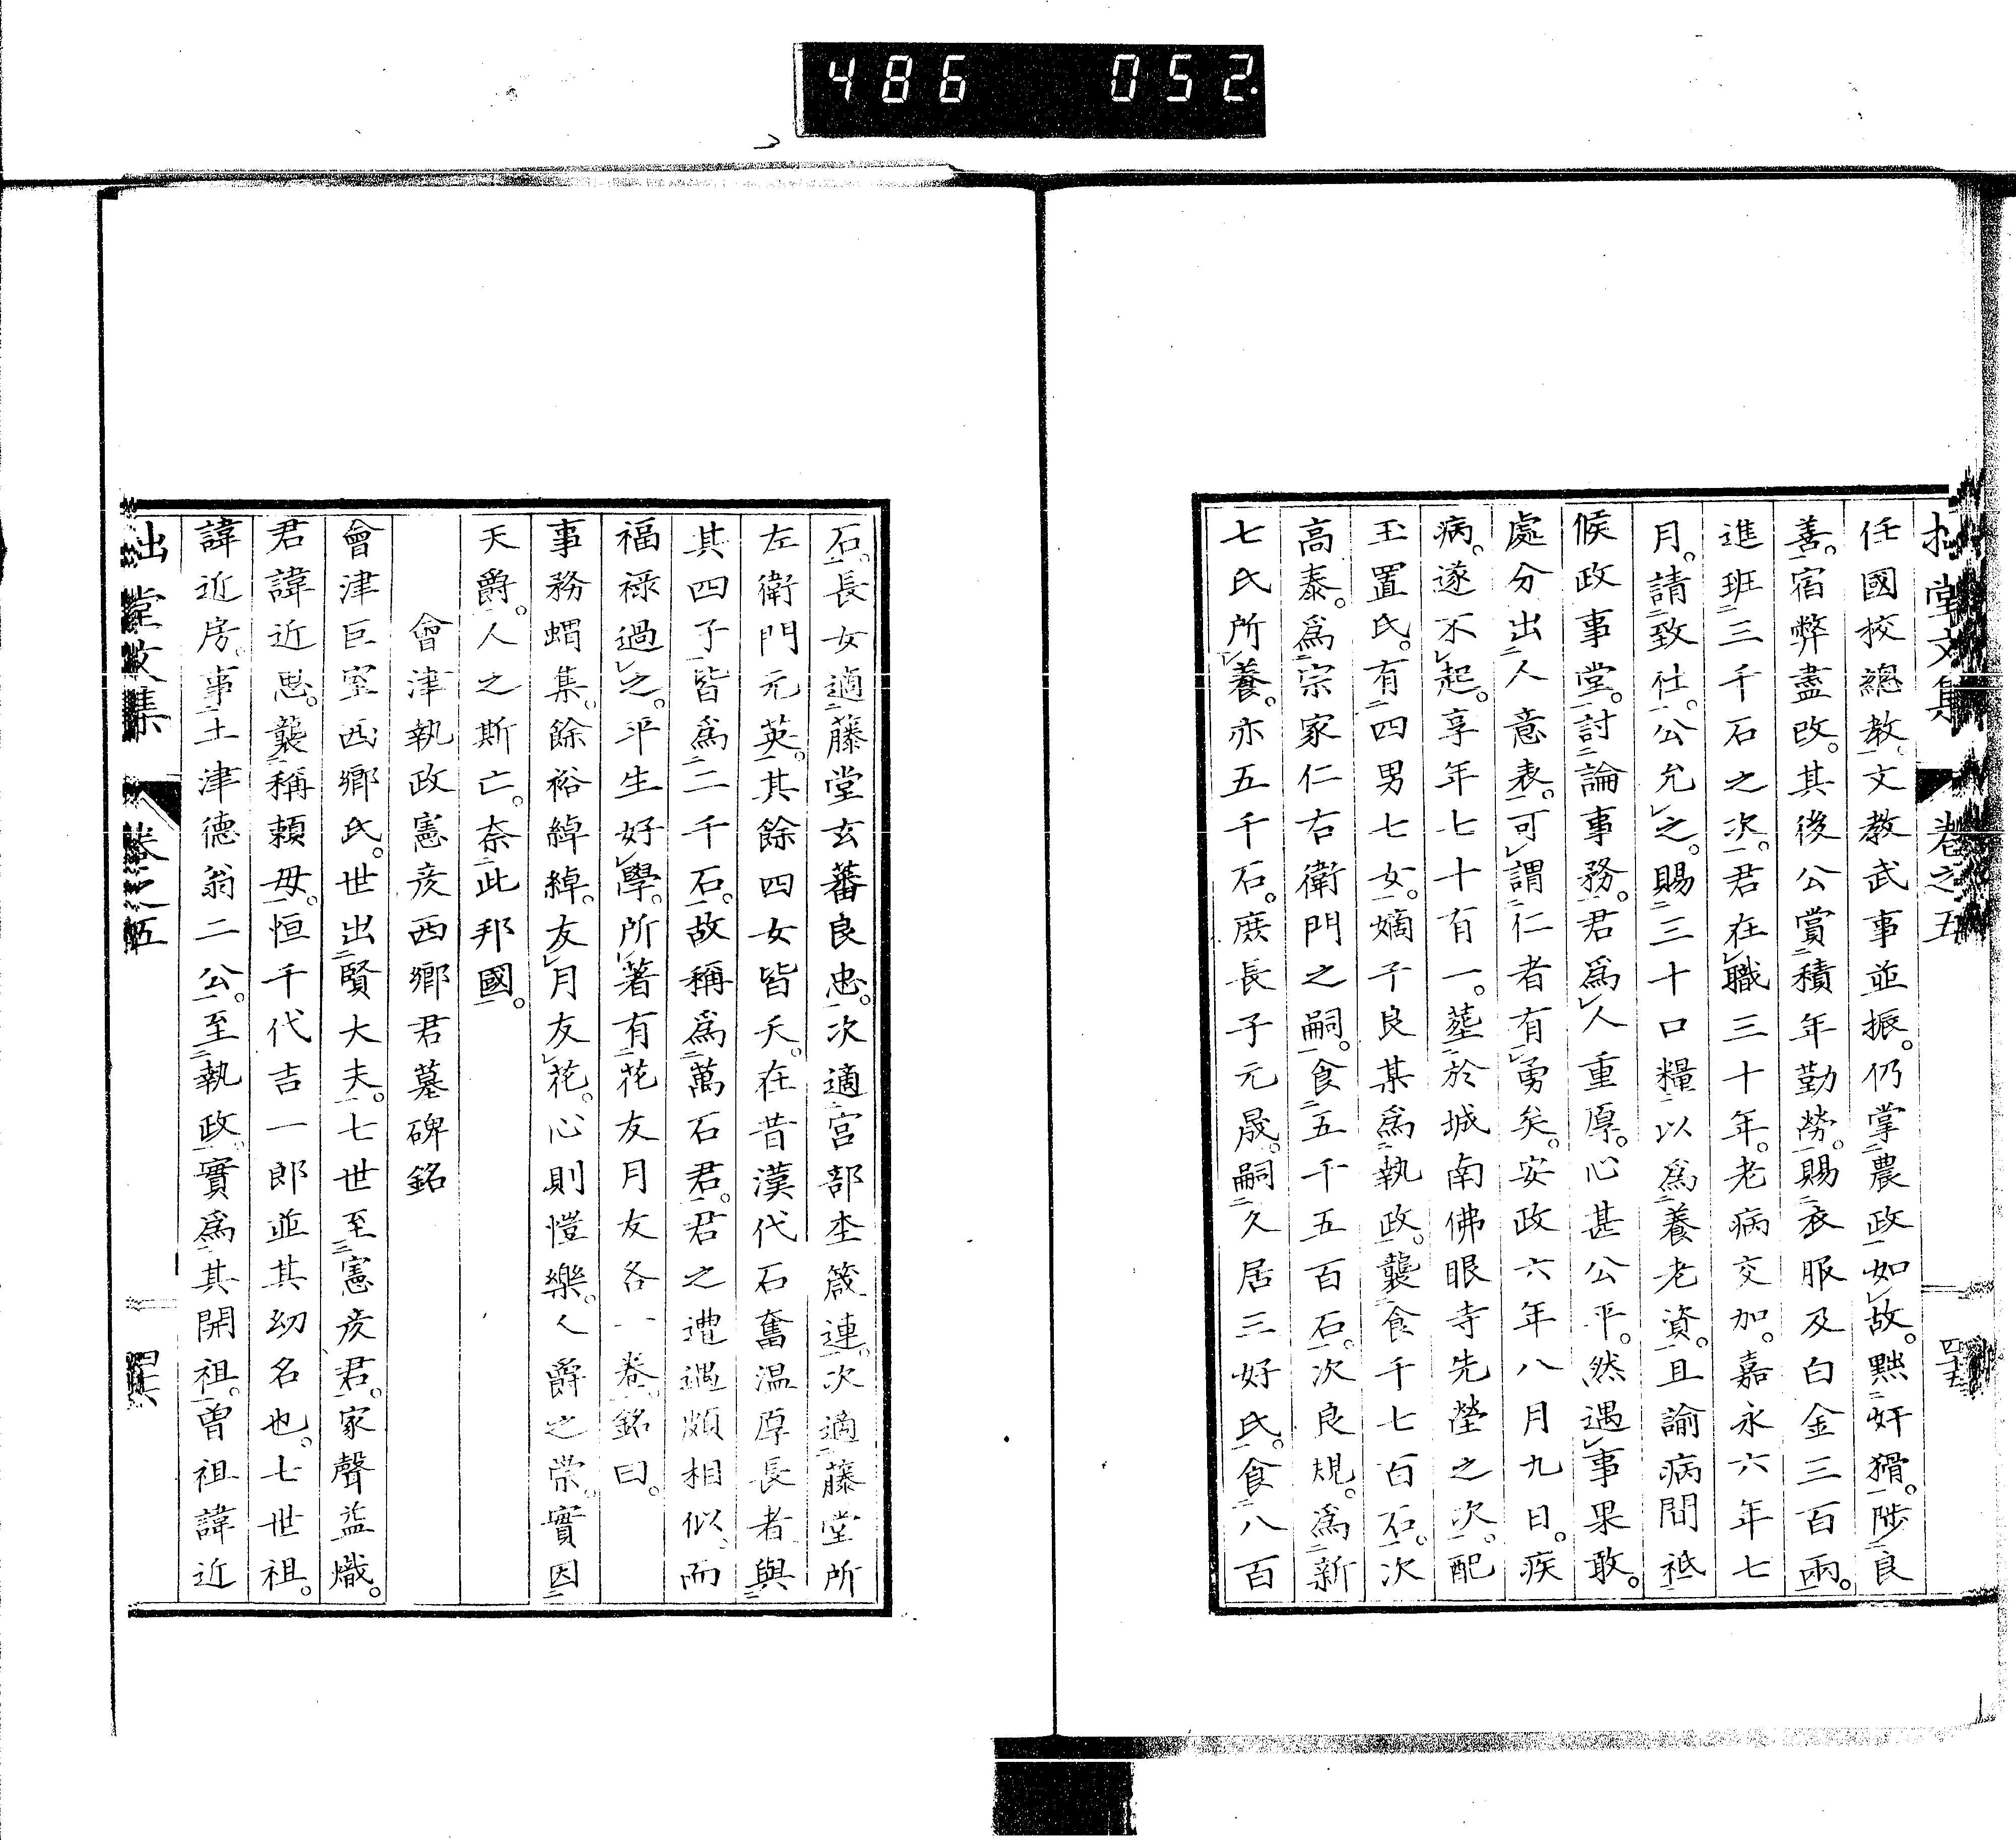 486 052
拙堂文集 卷之五
任國校總教。文教武事並振。仍掌農政如故。黜奸猾。陟良
善。宿弊盡改。其後公賞積年勤勞。賜衣服及白金三百兩。
進班三千石之次。君在職三十年。老病交加。嘉永六年七
月。請致仕。公允之。賜三十口糧以爲養老資。且諭病間祗
候政事堂。討論事務。君爲人重厚。心甚公平。然遇事果敢。
處分出人意表。可謂仁者有勇矣。安政六年八月九日。疾
病。遂不起。享年七十有一。葬於城南佛眼寺先塋之次。配
玉置氏。有四男七女。嫡子良某爲執政。襲食千七百石。次
高泰。爲宗家仁右衛門之嗣。食五千五百石。次良規。爲新
七氏所養。亦五千石。庶長子元晟。嗣久居三好氏。食八百
石。長女適藤堂玄蕃良忠。次適宮部杢箴連。次適藤堂所
左衛門元英。其餘四女皆夭。在昔漢代石奮温厚長者與
其四子皆爲二千石。故稱爲萬石君。君之遭遇頗相似、而
福祿過之。平生好學。所著有花友月友各一卷。銘曰。
事務蝟集。餘裕綽綽。友月友花。心則愷樂。人爵之崇。實因
天爵。人之斯亡。奈此邦國。
會津執政憲彦西鄉君墓碑銘
會津巨室西鄉氏。世出賢大夫。七世至憲彦君。家聲益熾。
君諱近思。襲稱賴母。恒千代吉一郎並其幼名也。七世祖。
諱近房。事土津德翁二公。至執政。實爲其開祖。曾祖諱近
拙堂文集 卷之五